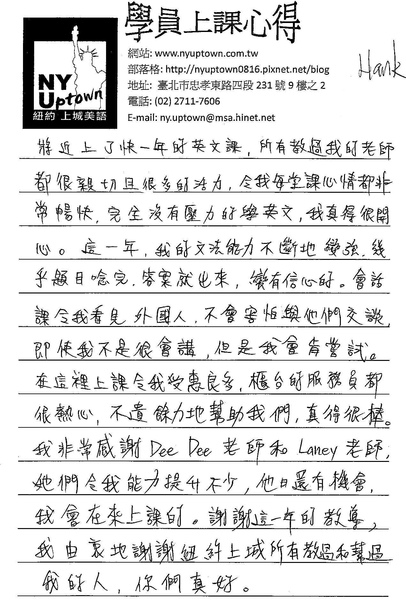 學員上課心得
NY
Uptown
紐約 上城美語
網站: www.nyuptown.com.tw
部落格: http://nyuptown0816.pixnet.net/blog
地址: 臺北市忠孝東路四段 231 號 9 樓之 2
電話: (02) 2711-7606
E-mail: ny.uptown@msa.hinet.net
Hank
將近上了快一年的英文課,所有教過我的老師
都很親切且很多的活力,令我每堂課心情都非
常暢快,完全沒有壓力的學英文,我真得很開
心。這一年,我的文法能力不斷地變強,幾
乎題目唸完,答案就出來,蠻有信心的。會話
課令我看見外國人,不會害怕與他們交談,
即使我不是很會講,但是我會肯嘗試。
在這裡上課令我受惠良多,櫃台的服務員都
很熱心,不遺餘力地幫助我們,真得很棒。
我非常感謝 Dee Dee 老師和 Laney 老師,
她們令我能力提升不少,他日還有機會,
我會在來上課的。謝謝這一年的教導,
我由衷地謝謝紐約上城所有教過和幫過
我的人,你們真好。